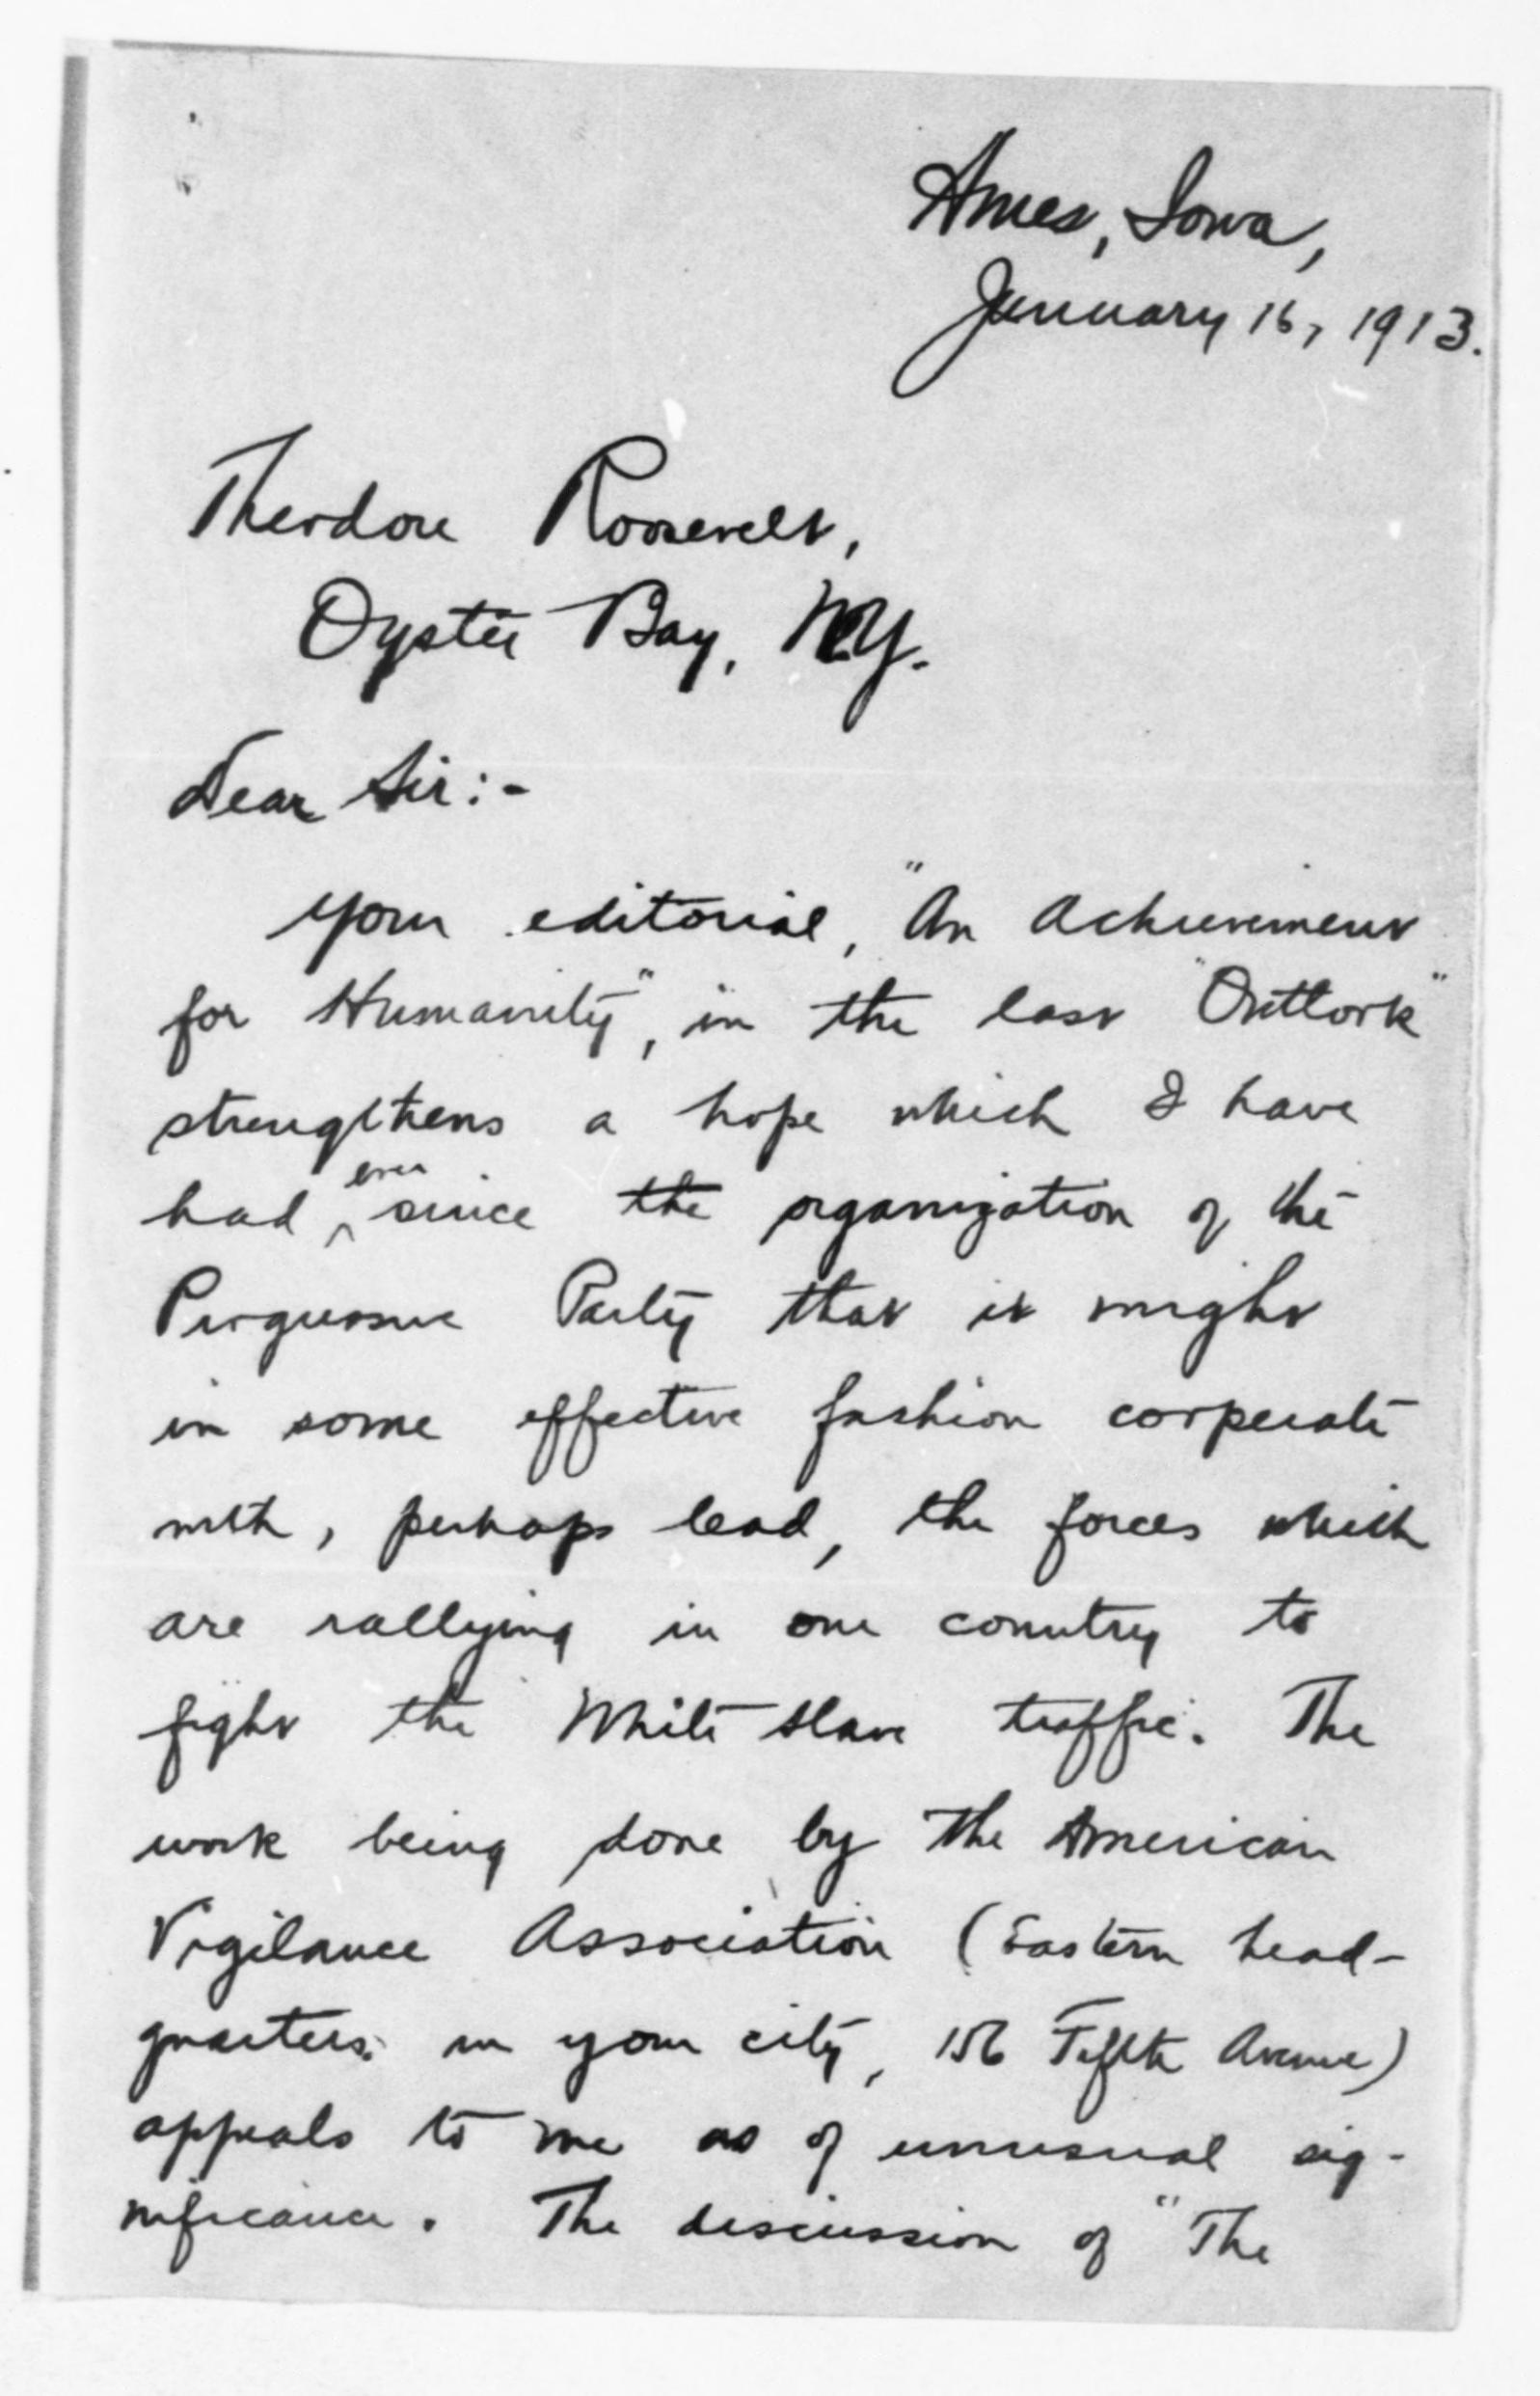 Ames, Iowa,
January 16, 1913.
Theodore Roosevelt,
Oyster Bay, N.Y.
Dear Sir:-
Your editorial, "An Achievement
for Humanity", in the last "Outlook"
strengthens a hope which I have
had ever since the organization of the
Progressive Party that it might
in some effective fashion cooperate
with, perhaps lead, the forces which
are rallying in our country to
fight the White slave traffic. The
work being done by the American
Vigilance Association (Eastern head-
quarters in your city, 156 Fifth Avenue)
appeals to me as of unusual sig-
nificance. The discussion of "The